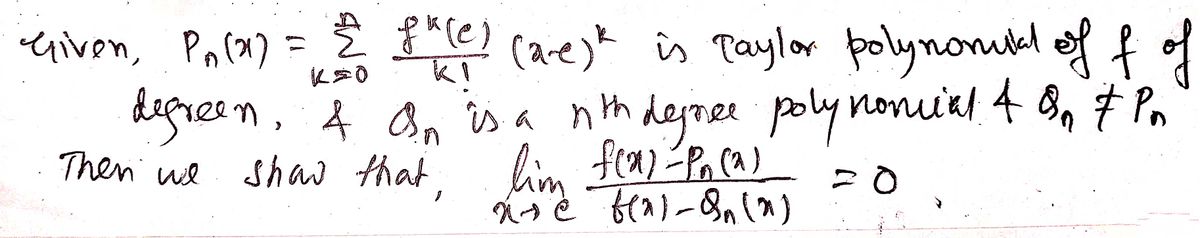 Given, Pₙ(x) = Σₖ₌₀ⁿ fᵏ(c)/k! (x-c)ᵏ is Taylor polynomial of f of
degree n, & Qₙ is a nth degree polynomial & Qₙ ≠ Pₙ
Then we show that, lim x→c (f(x) - Pₙ(x))/(f(x) - Qₙ(x)) = 0.